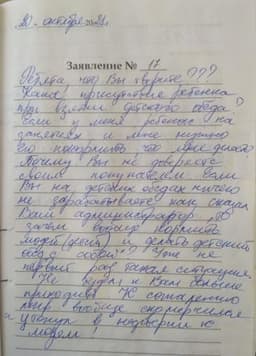 20 октября 2021.
Заявление № 17
Ребята что Вы творите???
Какое присутствие ребенка
при взятии детского обеда?
Если у меня ребенок на
занятиях и мне нужно
его покормить что мне делать
Почему Вы не доверяете
своим покупателям если
Вы на детских обедах ничего
не зарабатываете как сказал
Ваш администратор, то
зачем вообще кормить
людей (детей) и делать детский
обед с собой". Уже не
первый раз такая ситуация.
Не буду к Вам больше
приходить. К сожалению
мир вообще
в недоверии к
людям!